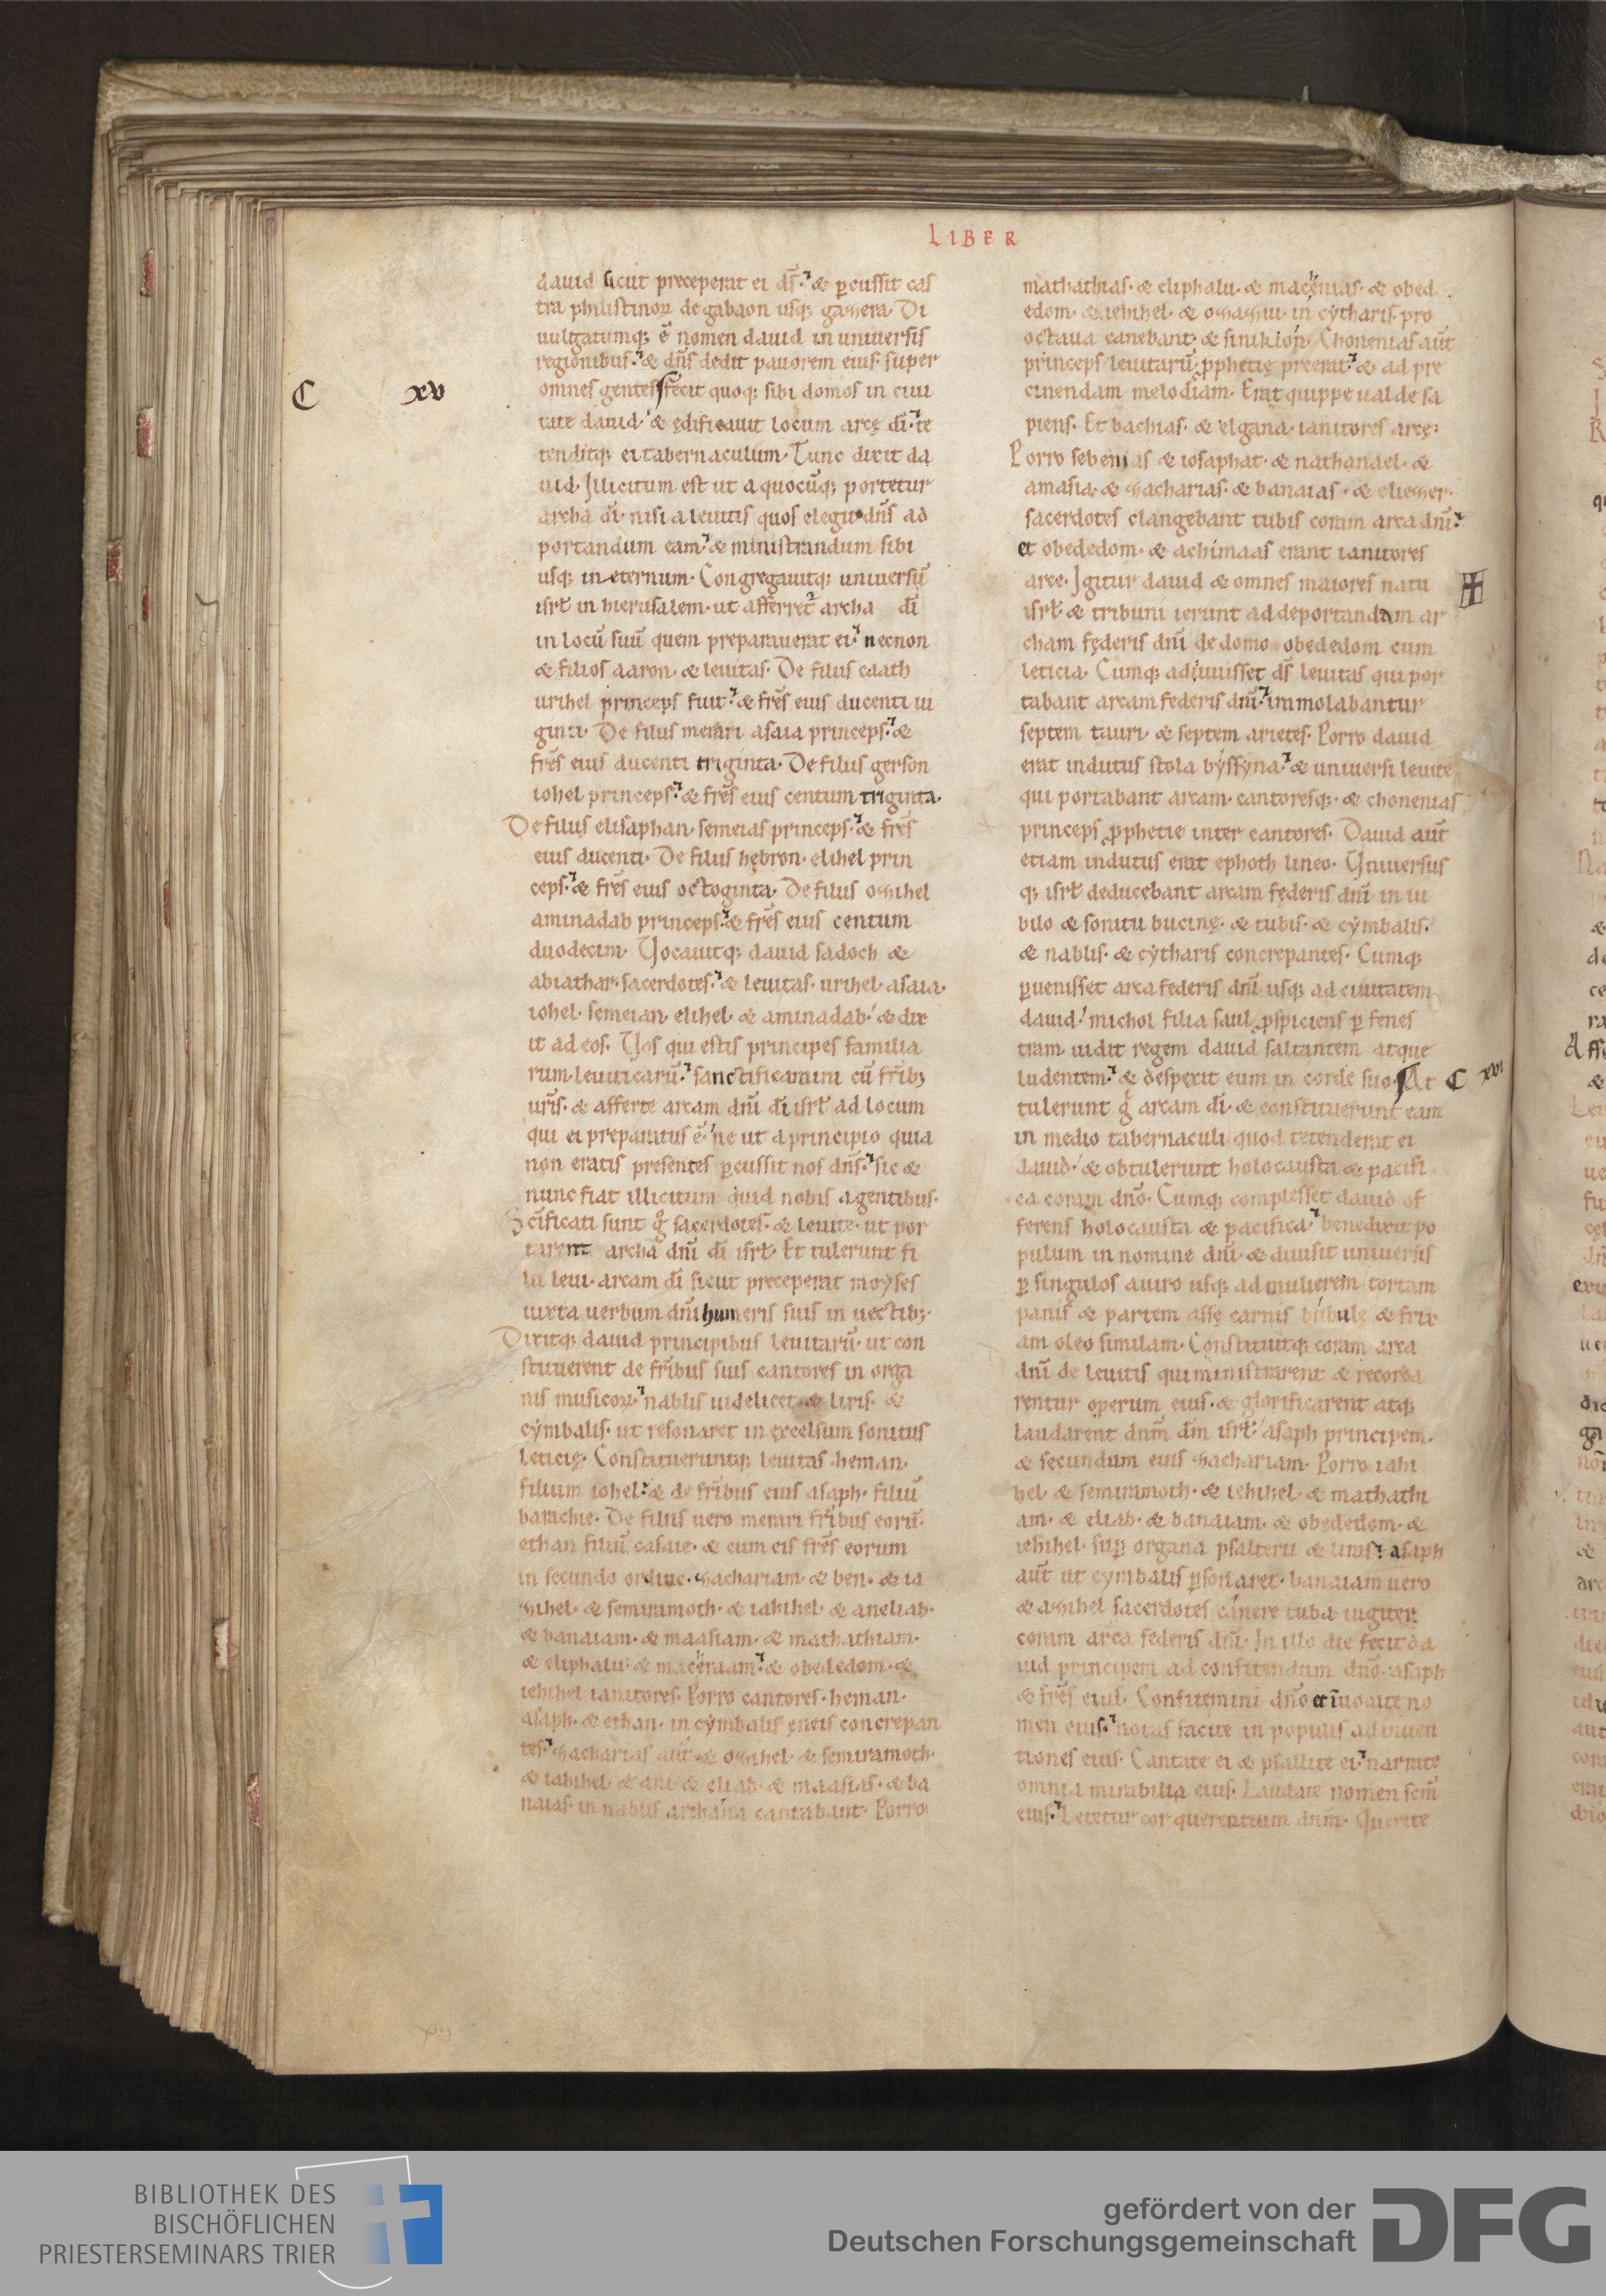 LIBER
dauid sicut preceperat ei ds̄. & ꝑcussit cas
tra philistinoꝝ de gabaon usq; gazera. Di
uulgatumq; ē nomen dauid in uniuersis
regionibus. & dn̄s dedit pauorem eius super
omnes gentes fecit quoq; sibi domos in ciui
C xv
tate dauid. & ędificauit locum arcę dī. te
tenditq; ei tabernaculum. Tunc dixit da
uid. Illicitum est ut a quocūq; portetur
archa dī. nisi a leuitis quos elegit dn̄s ad
portandum eam. & ministrandum sibi
usq; in eternum. Congregauitq; uniuersū
isrł in hierusalem. ut afferret̄ archa dī
in locū suū quem preparauerat ei. necnon
& filios aaron. & leuitas. De filiis caath
urihel princeps fuit. & fr̄es eius ducenti ui
ginti. De filiis merari asaia princeps. &
fr̄es eius ducenti triginta. De filiis gerson
iohel princeps. & fr̄es eius centum triginta.
De filiis elisaphan. semeias princeps. & fr̄es
eius ducenti. De filiis hębron. elihel prin
ceps. & fr̄es eius octoginta. De filiis ozihel
aminadab princeps. & fr̄es eius centum
duodecim. Vocauitq; dauid sadoch &
abiathar. sacerdotes. & leuitas. urihel. asaia.
iohel. semeian. elihel. & aminadab. & dix
it ad eos. Vos qui estis principes familia
rum leuiticarū. sanctificamini cū fr̄ib;
ur̄is. & afferte arcam dn̄i dī isrł ad locum
qui ei preparatus ē. ne ut a principio quia
non eratis presentes ꝑcussit nos dn̄s. sic &
nunc fiat illicitum quid nobis agentibus.
Scīficati sunt g̊ sacerdotes. & leuite. ut por
tarent archā dn̄i dī isrł. Et tulerunt fi
lii leui. arcam dī sicut preceperat moyses
iuxta uerbum dn̄i humeris suis in uectib;.
Dixitq; dauid principibus leuitarū. ut con
stituerent de fr̄ibus suis cantores in orga
nis musicoꝝ. nablis uidelicet. & liris. &
cymbalis. ut resonaret in excelsum sonitus
leticię. Constitueruntq; leuitas. heman.
filium iohel. & de fr̄ibus eius asaph. filiū
barachie. De filiis uero merari fr̄ibus eorū.
ethan filiū casaie. & cum eis fr̄es eorum
in secundo ordine. zachariam. & ben. & ia
zihel. & semiramoth. & iahihel. & ani eliab.
& banaiam. & maasiam. & mathathiam.
& eliphalu. & maceniam. & obededom. &
iehihel ianitores. Porro cantores. heman.
asaph. & ethan. in cymbalis ęneis concrepan
tes. zacharias aūt & ozihel. & semiramoth.
& iahihel. & ani. & eliab. & maasias. & ba
naias. in nablis archana cantabant. Porro
mathathias. & eliphalu. & macenias. & obed
edom. & iehihel. & ozaziu. in cytharis. pro
octaua canebant. & sinikion. Chonenias aūt
princeps leuitarū. ꝓphetię preerat. & ad pre
cinendam melodiam. Erat quippe ualde sa
piens. Et bachias. & elgana. ianitores arcę.
Porro sebenias & iosaphat. & nathanael. &
amasia. & zacharias. & banaias. & eliezer.
sacerdotes clangebant tubis coram arca dn̄i.
et obededom. & achimaas erant ianitores
arce. Igitur dauid & omnes maiores natu
isrł & tribuni ierunt ad deportandam ar
cham fęderis dn̄i de domo obededom cum
leticia. Cumq; adiuuisset ds̄ leuitas qui por
tabant arcam federis dn̄i. immolabantur
septem tauri. & septem arietes. Porro dauid
erat indutus stola byssyna. & uniuersi leuite
qui portabant arcam. cantoresq;. & chonenias
princeps ꝓphetie inter cantores. Dauid aūt
etiam indutus erat ephoth lineo. Vniuersus
q; isrł deducebant arcam fęderis dn̄i in iu
bilo & sonitu bucinę. & tubis. & cymbalis.
& nablis. & cytharis concrepantes. Cumq;
ꝑuenisset arca federis dn̄i usq; ad ciuitatem
dauid. michol filia saul ꝓspiciens ꝑ fenes
tram. uidit regem dauid saltantem atque
ludentem. & despexit eum in corde suo. At
C xvi
tulerunt g̊ arcam dī. & constituerunt eam
in medio tabernaculi quod tetenderat ei
dauid. & obtulerunt holocausta & pacifi
ca coram dn̄o. Cumq; complesset dauid of
ferens holocausta & pacifica. benedixit po
pulum in nomine dn̄i. & diuisit uniuersis
ꝑ singulos a uiro usq; ad mulierem tortam
panis & partem assę carnis bubulę & frix
am oleo similam. Constituitq; coram arca
dn̄i de leuitis qui ministrarent & recorda
rentur operum eius. & glorificarent atq;
laudarent dn̄m dm̄ isrł. asaph principem.
& secundum eius zachariam. Porro iahi
hel. & semiramoth. & iehihel. & mathathi
am. & eliab. & banaiam. & obededom. &
iehihel. suꝑ organa psalterii & liras. asaph
aūt ut cymbalis ꝑsonaret. banaiam uero
& azihel sacerdotes canere tuba iugiter
coram arca federis dn̄i. In illo die fecit da
uid principem ad confitendum dn̄o. asaph
& fr̄es eius. Confitemini dn̄o et īuocate no
men eius. notas facite in populis adinuen
tiones eius. Cantate ei & psallite ei. narrate
omnia mirabilia eius. Laudate nomen scm̄
eius. Letetur cor querentium dn̄m. Querite
BIBLIOTHEK DES
BISCHÖFLICHEN
PRIESTERSEMINARS TRIER
gefördert von der
Deutschen Forschungsgemeinschaft
DFG